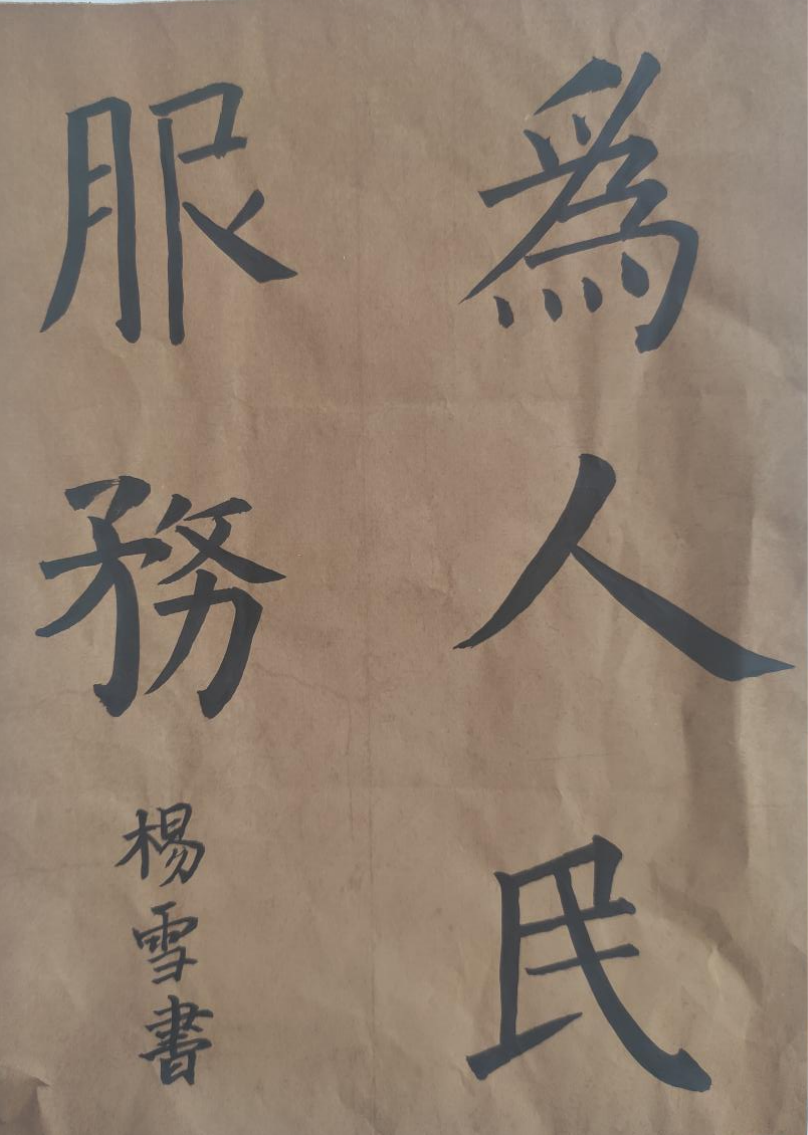 為人民
服務
楊雪書